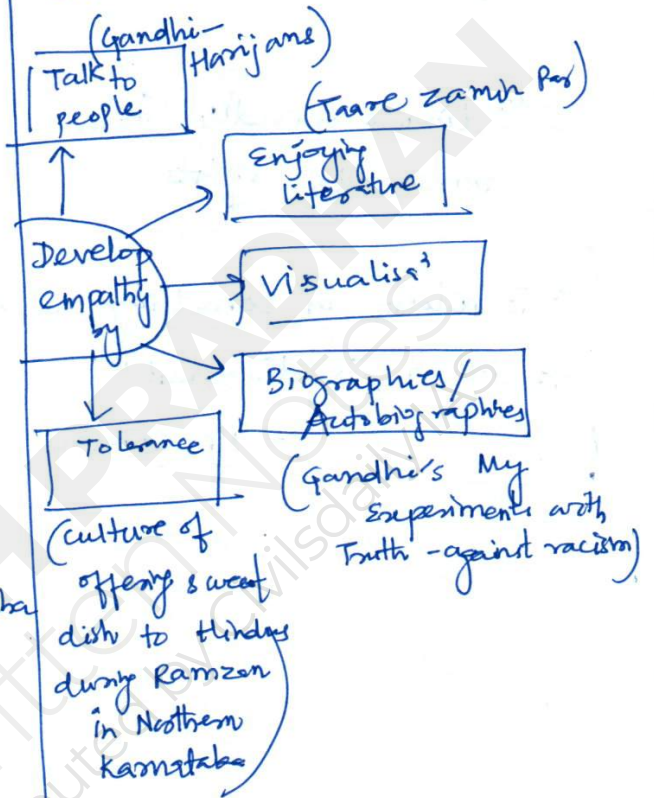 (Gandhi-
Harijans)
Talk to
people
(Taare zamin Par)
Enjoying
literature
Develop
empathy
by
Visualisⁿ
Biographies/
Autobiographies
(Gandhi's My
Experiments with
Truth - against racism)
Tolerance
(culture of
offering sweet
dish to Hindus
during Ramzan
in Northern
Karnataka